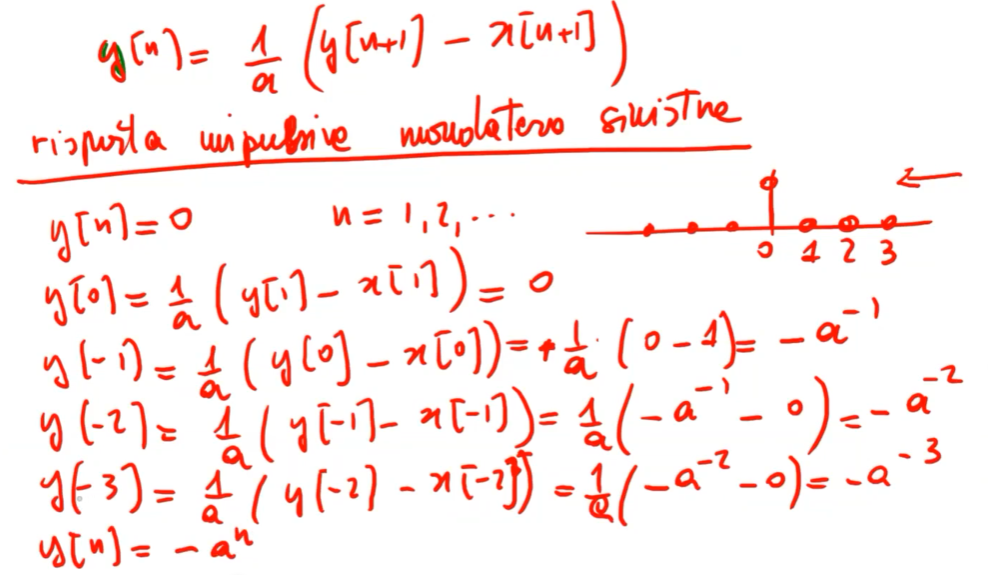 y[n] = 1/a (y[n+1] - x[n+1])
risposta impulsiva monolatera sinistra
y[n] = 0 n = 1, 2, ...
0 1 2 3
y[0] = 1/a (y[1] - x[1]) = 0
y[-1] = 1/a (y[0] - x[0]) = + 1/a · (0 - 1) = - a^-1
y[-2] = 1/a (y[-1] - x[-1]) = 1/a (-a^-1 - 0) = - a^-2
y[-3] = 1/a (y[-2] - x[-2]) = 1/a (-a^-2 - 0) = - a^-3
y[n] = - a^n